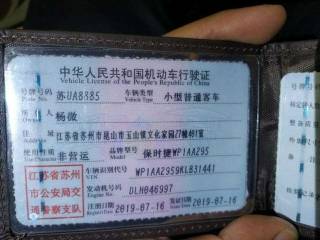 中华人民共和国机动车行驶证
Vehicle License of the People's Republic of China
号牌号码 苏UA8385 车辆类型 小型普通客车
Plate No. Vehicle Type
所 人 杨微
住 址 江苏省苏州市昆山市玉山镇文化家园27幢401室
使用性质 非营运 品牌型号 保时捷WP1AA295
Use Character Model
江苏省苏州
市公安局交
通警察支队
车辆识别代号 WP1AA2959KLB31441
VIN
发动机号码 DLH046997
Engine No.
注册日期 2019-07-16 发证日期 2019-07-16
Register Date Issue Date